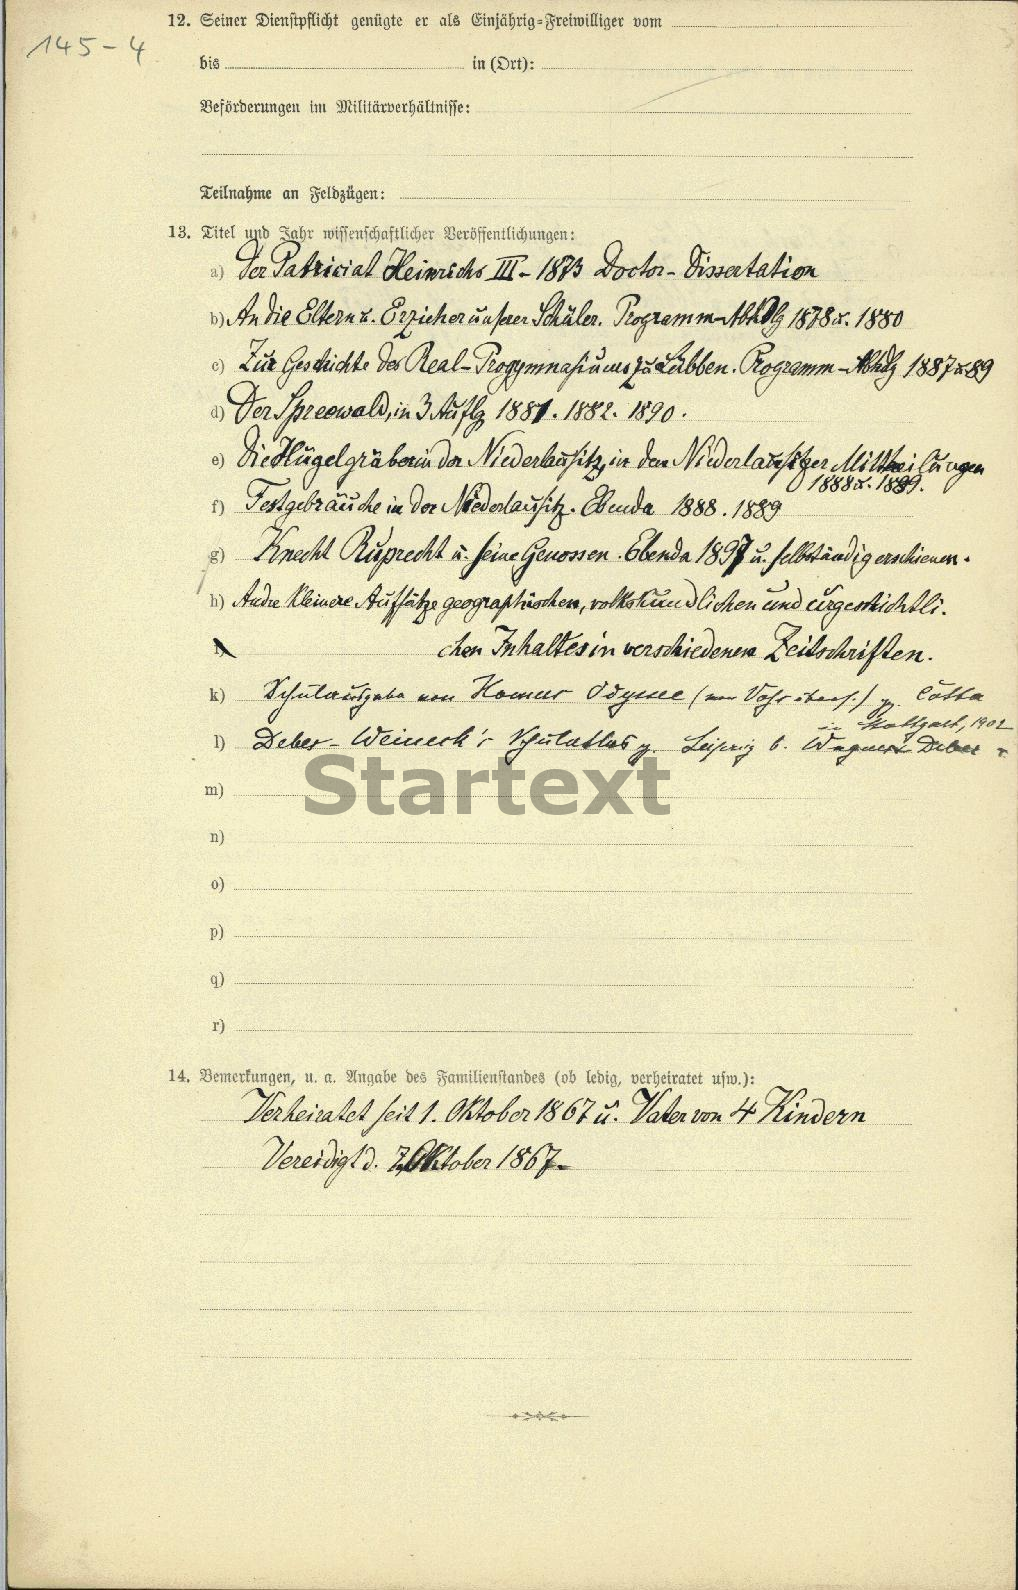 145-4
12. Seiner Dienstpflicht genügte er als Einjährig-Freiwilliger vom
bis in (Ort):
Beförderungen im Militärverhältnisse:
Teilnahme an Feldzügen:
13. Titel und Jahr wissenschaftlicher Veröffentlichungen:
a) Der Patriciat Heinrichs III - 1873 Doctor-Dissertation
b) An die Eltern u. Erzieher unserer Schüler. Programm-Abhdlg 1878 u. 1880
c) Zur Geschichte des Real-Progymnasiums zu Lübben. Programm-Abhdlg 1887 u 89
d) Der Spreewald, in 3 Auflg 1881. 1882. 1890.
e) Die Hügelgräber in der Niederlausitz, in den Niederlausitzer Mittheilungen
1888 u. 1889.
f) Festgebräuche in der Niederlausitz. Ebenda 1888. 1889
g) Knecht Ruprecht u. seine Genossen. Ebenda 1897 u. selbständig erschienen.
h) Andre kleinere Aufsätze geographischen, volkskundlichen und urgeschichtli.
chen Inhaltes in verschiedenen Zeitschriften.
k) Schulausgabe von Homers Odyssee (von Voß übers.) Cotta
in Stuttgart, 1902
l) Debes-Weineck's Schulatlas Leipzig b. Wagner Debes
Startext
m)
n)
o)
p)
q)
r)
14. Bemerkungen, u. a. Angabe des Familienstandes (ob ledig, verheiratet usw.):
Verheiratet seit 1. Oktober 1867 u. Vater von 4 Kindern
Vereidigt d. 7. Oktober 1867.